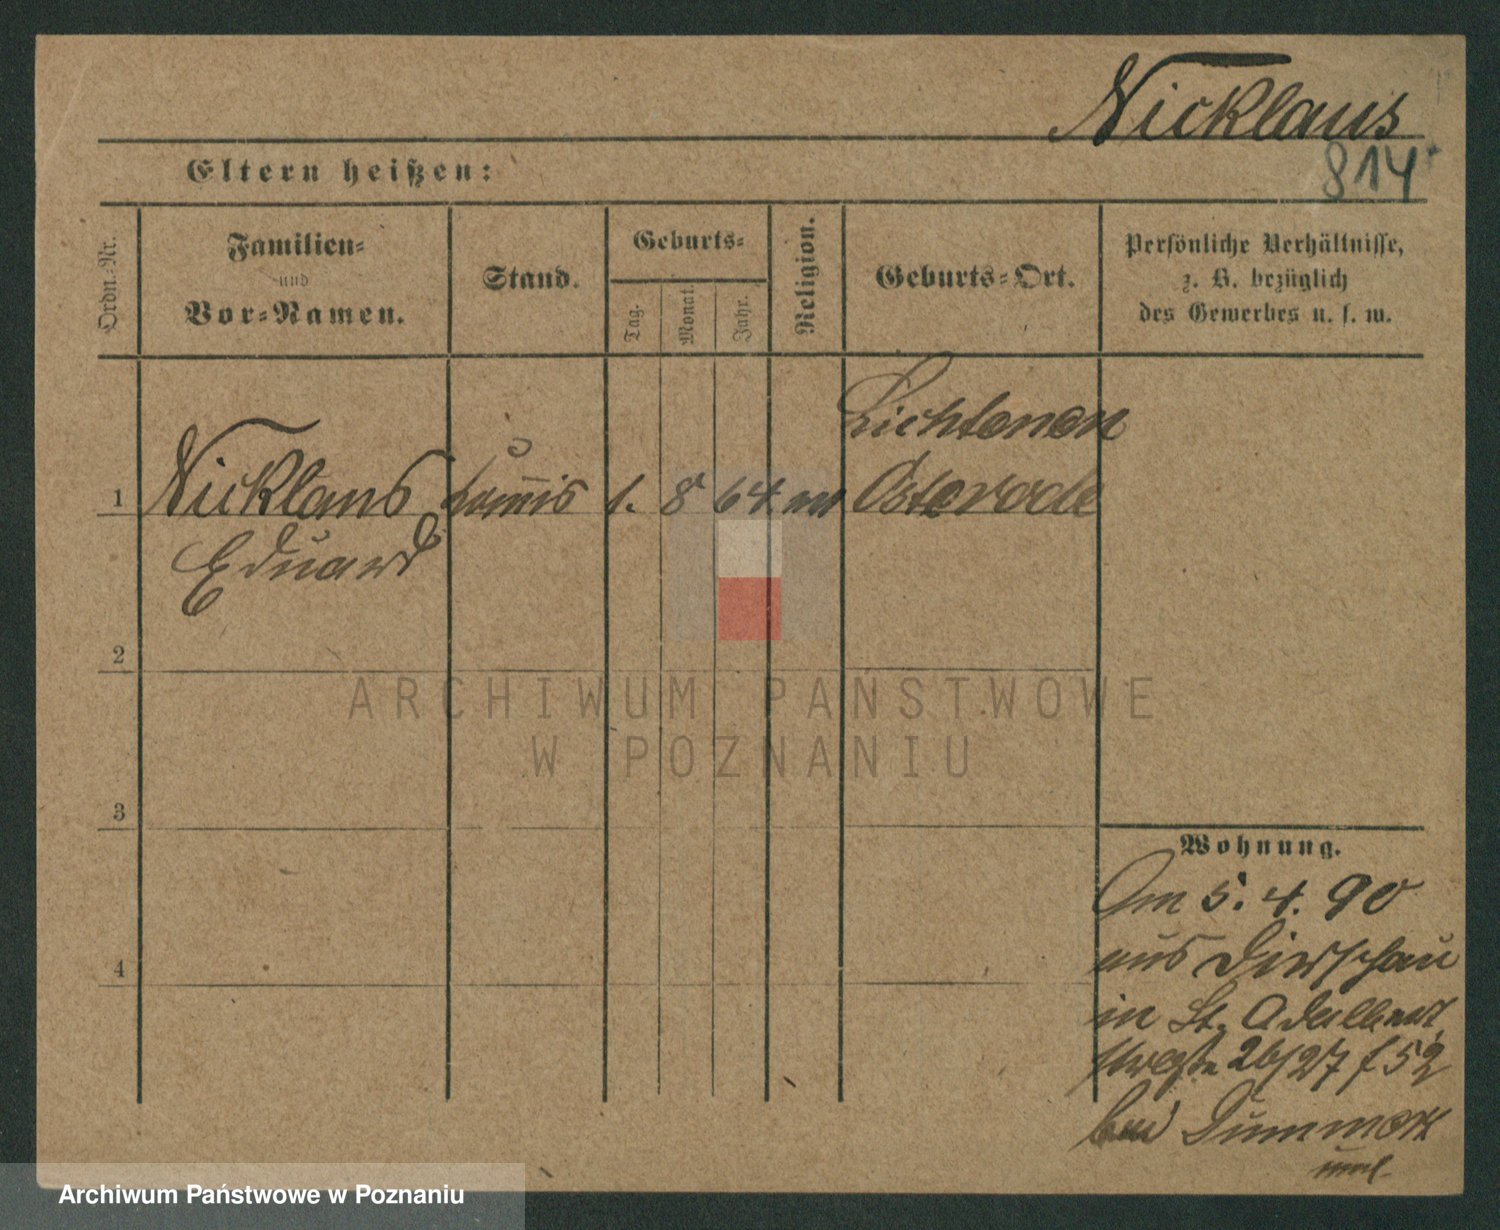 Nicklaus
814
Eltern heißen:
Ordn.-Nr.
Familien-
und
Vor-Namen.
Stand.
Geburts-
Tag.
Monat.
Jahr.
Religion.
Geburts-Ort.
Persönliche Verhältnisse,
z. B. bezüglich
des Gewerbes u. s. w.
Lichtenen
1 Nicklaus 1. 8 64 Osterode
Eduard
2
ARCHIWUM PAŃSTWOWE
W POZNANIU
3
Wohnung.
Am 5. 4. 90
aus Dirschau
4
in St. Adalbert
26/27
bei
Archiwum Państwowe w Poznaniu